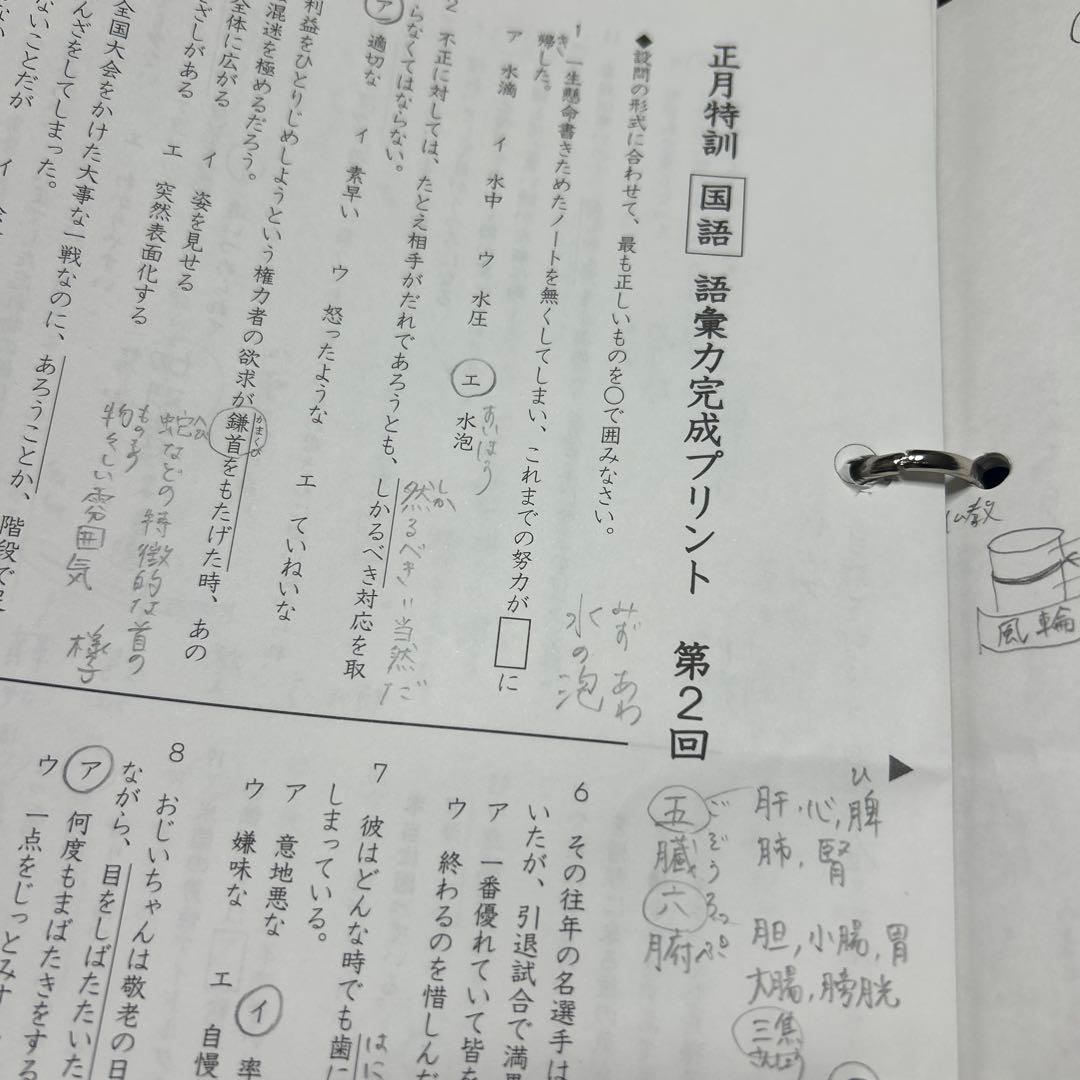 正月特訓 国語 語彙力完成プリント 第2回
◆設問の形式に合わせて、最も正しいものを○で囲みなさい。
みず あわ
水の泡
1 一生懸命書きためたノートを無くしてしまい、これまでの努力が□に
帰した。
ア 水滴 イ 水中 ウ 水圧 エ 水泡
すいほう
2 不正に対しては、たとえ相手がだれであろうとも、しかるべき対応を取
らなくてはならない。
しか
然るべき=当然だ
ア 適切な イ 素早い ウ 怒ったような エ ていねいな
利益をひとりじめしようという権力者の欲求が鎌首をもたげた時、あの
かまくび
混迷を極めるだろう。
全体に広がる イ 姿を見せる
ざしがある エ 突然表面化する
へび
蛇などの特徴的な首の
様子
物々しい雰囲気
全国大会をかけた大事な一戦なのに、あろうことか、階段で足
んざをしてしまった。
ないことだが
6 その往年の名選手は
いたが、引退試合で満
ア 一番優れていて皆を
ウ 終わるのを惜しんだ
7 彼はどんな時でも歯に
しまっている。
ア 意地悪な イ 率
ウ 嫌味な エ 自慢
8 おじいちゃんは敬老の日
ながら、目をしばたたいた
ア 何度もまばたきをする
ウ 一点をじっとみす
五臓六腑
ごぞうろっぷ
ひ
肝,心,脾
肺,腎
胆,小腸,胃
大腸,膀胱
三焦
さんしょう
仏教
風輪